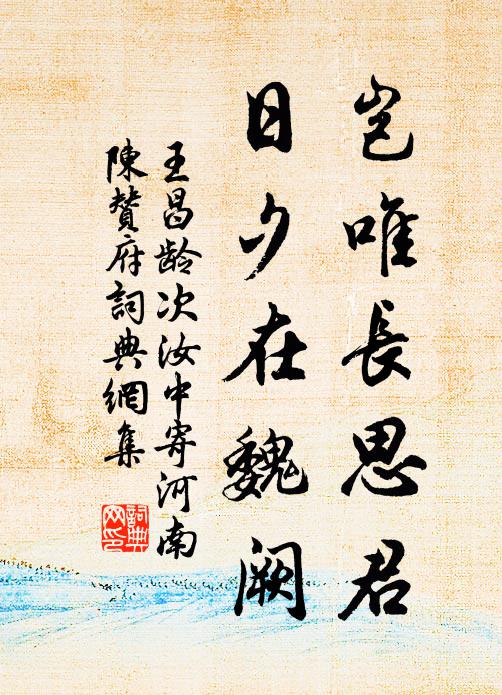 豈唯長思君
日夕在魏闕
王昌龄次汝中寄河南
陳贊府詞典網集
詞典网印